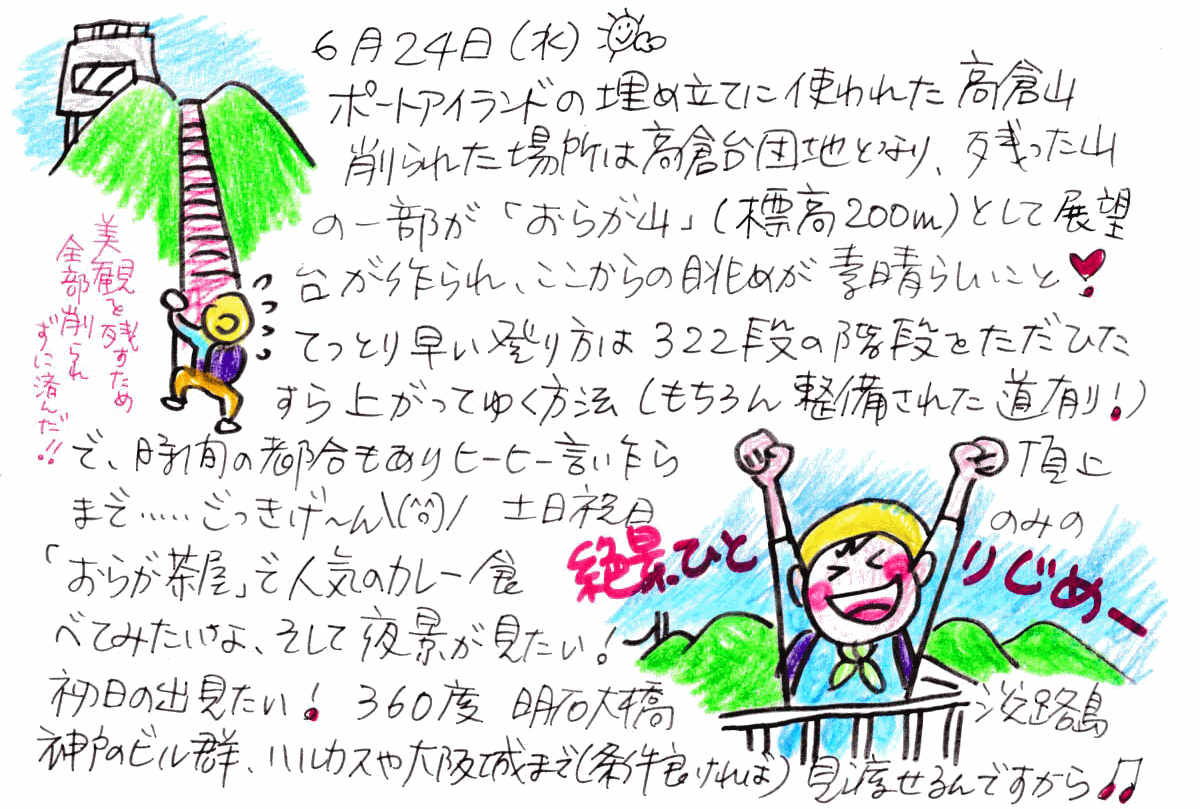 6月24日(水)
ポートアイランドの埋め立てに使われた高倉山
削られた場所は高倉台団地となり、残った山
の一部が「おらが山」(標高200m)として展望
台が作られ、ここからの眺めが素晴らしいこと
てっとり早い登り方は322段の階段をただひた
すら上がってゆく方法(もちろん整備された道有り!)
で、時間の都合もありヒーヒー言い乍ら
頂上
まで……ごっきげ〜ん\(^^)/ 土日祝日
のみの
「おらが茶屋」で人気のカレー食
べてみたいなよ、そして夜景が見たい!
初日の出見たい! 360度 明石大橋
淡路島
神戸のビル群、ハルカスや大阪城まで(条件良ければ)見渡せるんですから♫
美観を残すため
全部削られ
ずに済んだ!!
絶景ひとりじめー